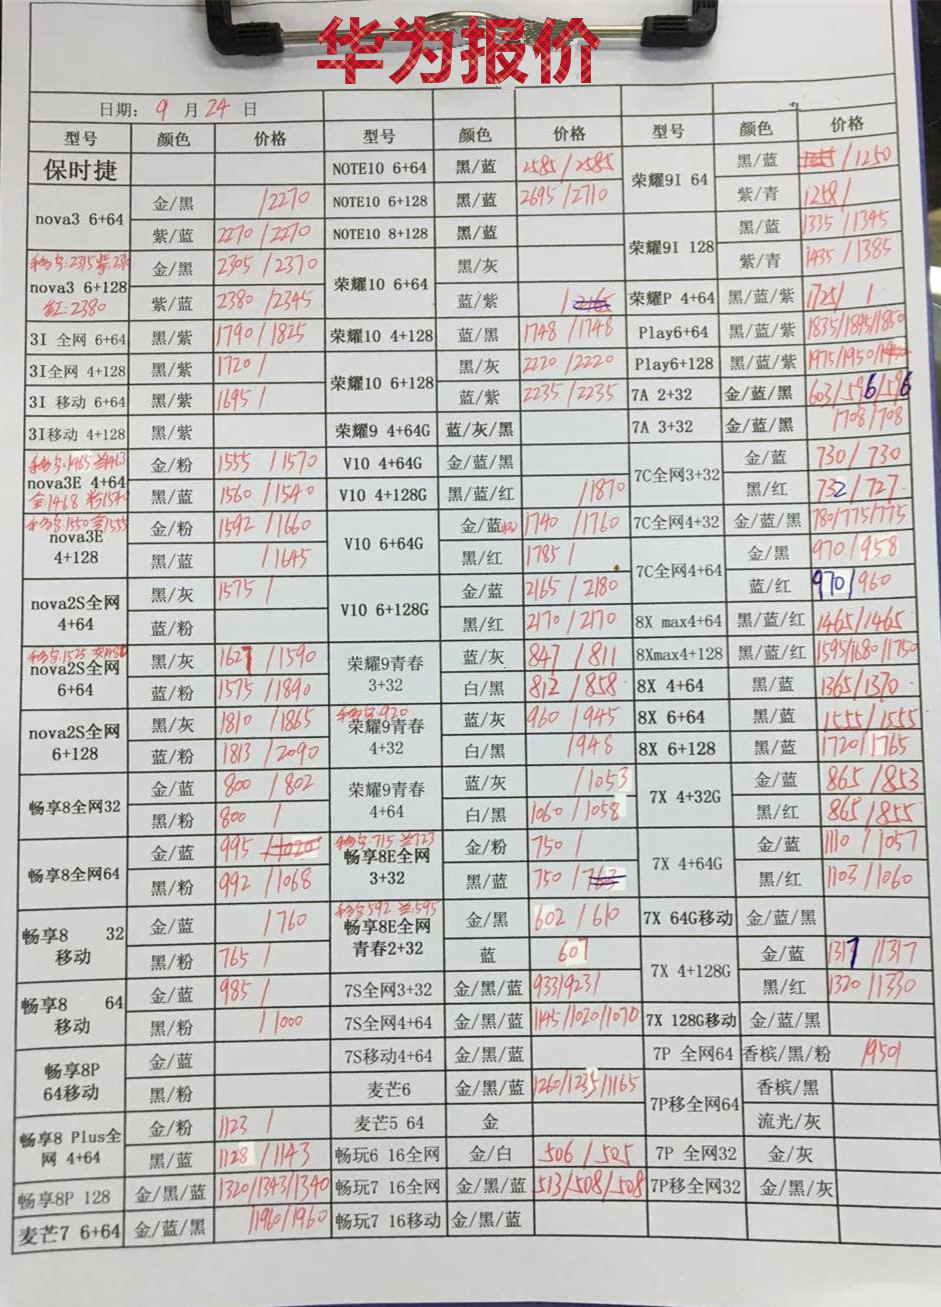 华为报价
日期: 9 月 24 日
型号 颜色 价格 型号 颜色 价格 型号 颜色 价格
保时捷
NOTE10 6+64 黑/蓝 2585/2585
荣耀9I 64 黑/蓝 /1250
紫/青 1258/
nova3 6+64 金/黑 /2270
紫/蓝 2270/2270
NOTE10 6+128 黑/蓝 2695/2710
NOTE10 8+128 黑/蓝
荣耀9I 128 黑/蓝 1335/1345
紫/青 1435/1385
nova3 6+128 金/黑 2305/2370
红:2380 紫/蓝 2380/2345
荣耀10 6+64 黑/灰
蓝/紫 /2165
荣耀P 4+64 黑/蓝/紫 1725/ /
3I 全网 6+64 黑/紫 1790/1825
荣耀10 4+128 蓝/黑 1748/1748
Play6+64 黑/蓝/紫 1835/1845/1850
3I全网 4+128 黑/紫 1720/
荣耀10 6+128 黑/灰 2220/2220
蓝/紫 2235/2235
Play6+128 黑/蓝/紫 1975/1950/
3I 移动 6+64 黑/紫 1695/
7A 2+32 金/蓝/黑 603/596/596
3I移动 4+128 黑/紫
荣耀9 4+64G 蓝/灰/黑
7A 3+32 金/蓝/黑 /708/708
nova3E 4+64 金/粉 1555/1570
黑/蓝 1560/1540
V10 4+64G 金/蓝/黑
V10 4+128G 黑/蓝/红 /1870
7C全网3+32 金/蓝 730/730
黑/红 732/727
nova3E 4+128 金/粉 1592/1660
黑/蓝 /1645
V10 6+64G 金/蓝 1740/1760
黑/红 1785/
7C全网4+32 金/蓝/黑 780/775/775
7C全网4+64 金/黑 970/958
蓝/红 970/960
nova2S全网 4+64 黑/灰 1575/
蓝/粉
V10 6+128G 金/蓝 2165/2180
黑/红 2170/2170
8X max4+64 黑/蓝/红 1465/1465
nova2S全网 6+64 黑/灰 1627/1590
蓝/粉 1575/1890
荣耀9青春 3+32 蓝/灰 847/811
白/黑 812/858
8Xmax4+128 黑/蓝/红 1595/1680/1750
8X 4+64 黑/蓝 1365/1370
nova2S全网 6+128 黑/灰 1810/1865
蓝/粉 1813/2090
荣耀9青春 4+32 蓝/灰 960/945
白/黑 /948
8X 6+64 黑/蓝 1555/1555
8X 6+128 黑/蓝 1720/1765
畅享8全网32 金/蓝 800/802
黑/粉 800/
荣耀9青春 4+64 蓝/灰 /1053
白/黑 1060/1058
7X 4+32G 金/蓝 865/853
黑/红 865/855
畅享8全网64 金/蓝 995/1020
黑/粉 992/1068
畅享8E全网 3+32 金/粉 750/
黑/蓝 750/763
7X 4+64G 金/蓝 1110/1057
黑/红 1103/1060
畅享8 32 移动 金/蓝 /760
黑/粉 765/
畅享8E全网 青春2+32 金/黑 602/610
蓝 607
7X 64G移动 金/蓝/黑
7X 4+128G 金/蓝 1317/1317
黑/红 1320/1330
畅享8 64 移动 金/蓝 985/
黑/粉 /1000
7S全网3+32 金/黑/蓝 933/923/
7S全网4+64 金/黑/蓝 1145/1020/1070
7X 128G移动 金/蓝/黑
畅享8P 64移动 金/蓝
黑/粉
7S移动4+64 金/黑/蓝
麦芒6 金/黑/蓝 1260/1235/1165
7P 全网64 香槟/黑/粉 /950/
7P移全网64 香槟/黑
流光/灰
畅享8 Plus全网 4+64 金/粉 1123/
黑/蓝 1128/1143
麦芒5 64 金
畅玩6 16全网 金/白 506/505
7P 全网32 金/灰
畅享8P 128 金/黑/蓝 1320/1343/1340
畅玩7 16全网 金/黑/蓝 513/508/508
7P移全网32 金/黑/灰
麦芒7 6+64 金/蓝/黑 /1960/1960
畅玩7 16移动 金/黑/蓝